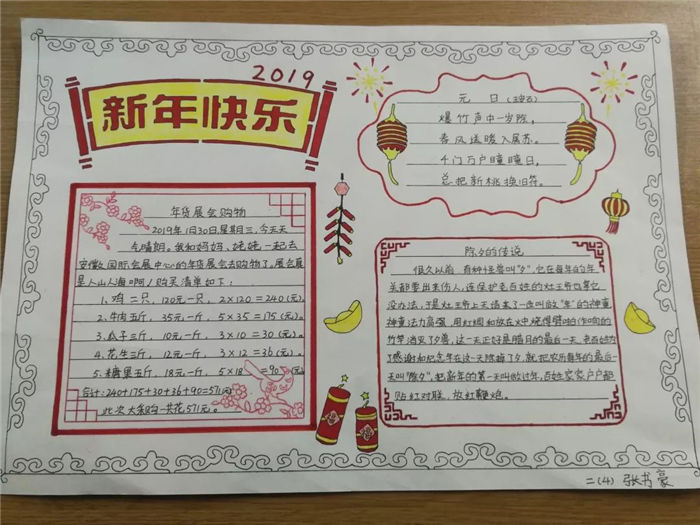 2019
新年快乐
年货展会购物
2019年1月30日星期三,今天天
气晴朗。我和妈妈、姥姥一起去
安徽国际会展中心的年货展会去购物了。展会真
是人山人海啊!购买清单如下:
1、鸡二只,120元一只,2×120=240(元)。
2、牛肉五斤,35元一斤,5×35=175(元)。
3、瓜子三斤,10元一斤,3×10=30(元)。
4、花生三斤,12元一斤,3×12=36(元)。
5、糖果五斤,18元一斤,5×18=90(元)
合计:240+175+30+36+90=571元
此次大采购一共花571元。
元日(王安石)
爆竹声中一岁除,
春风送暖入屠苏。
千门万户曈曈日,
总把新桃换旧符。
除夕的传说
很久以前,有种怪兽叫"夕",它在每年的年
关都要出来伤人,连保护老百姓的灶王爷也拿它
没办法,于是灶王爷上天请来了一位叫做"年"的神童
神童法力高强,用红绸和放在火中烧得劈啪作响的
竹竿消灭了夕兽,这一天正好是腊月的最后一天,老百姓为了
感谢和纪念年在这一天除掉了夕,就把农历每年的最后一
天叫"除夕",把新年的第一天叫做过年,百姓家家户户都
贴红对联,放红鞭炮。
二(4) 张书豪